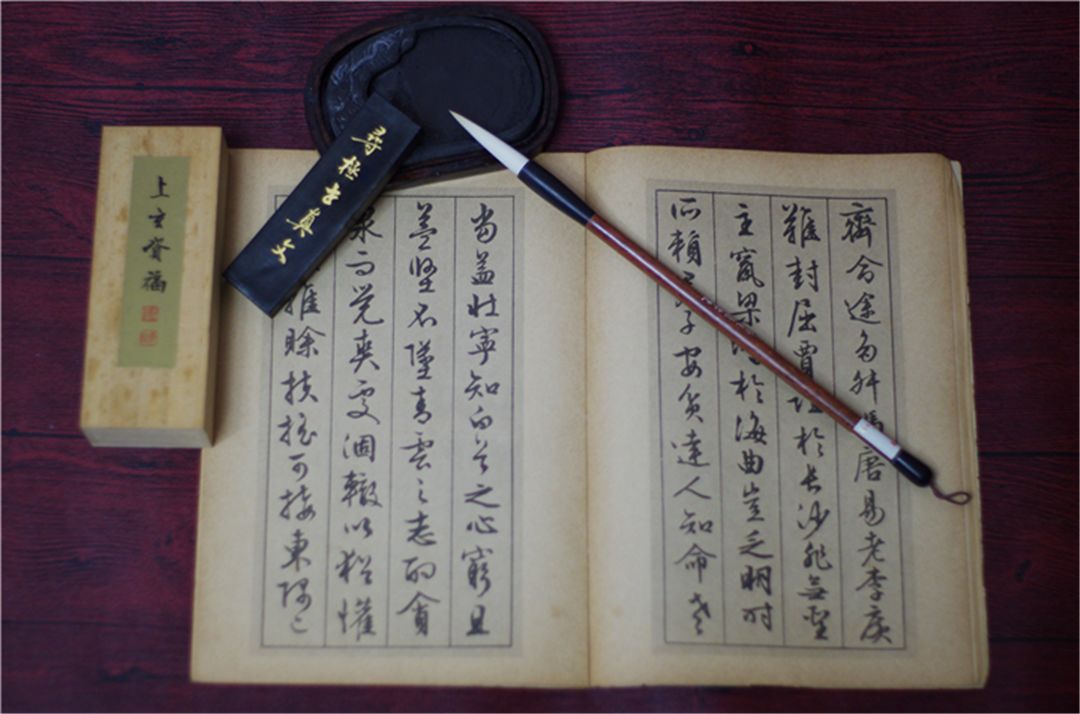 齊命途多舛馮唐易老李廣
難封屈賈誼於長沙非無聖
主竄梁鴻於海曲豈乏明時
所賴君子安貧達人知命老
當益壯寧知白首之心窮且
益堅不墜青雲之志酌貪
泉而覺爽處涸轍以猶懽
雖賒扶搖可接東隅已
尋極真文
上資福